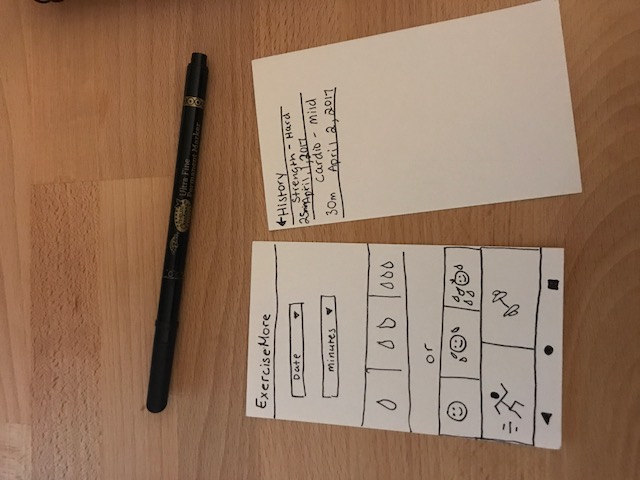 Ultra Fine
Permanent Marker
ExerciseMore
Date
minutes
or
History
Strength - Hard
25m April, 1, 2017
Cardio - Mild
30m April 2, 2017